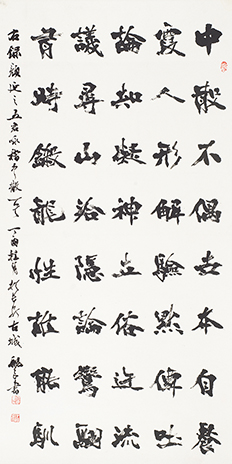 中散不偶世本自餐
霞人形解驗默僊吐
論知凝神立俗迕流
議尋山洽隱淪鸞翮
有時鎩龍性誰能馴
右錄顏延之五君詠嵇中散一首丁酉桂月於長安古城